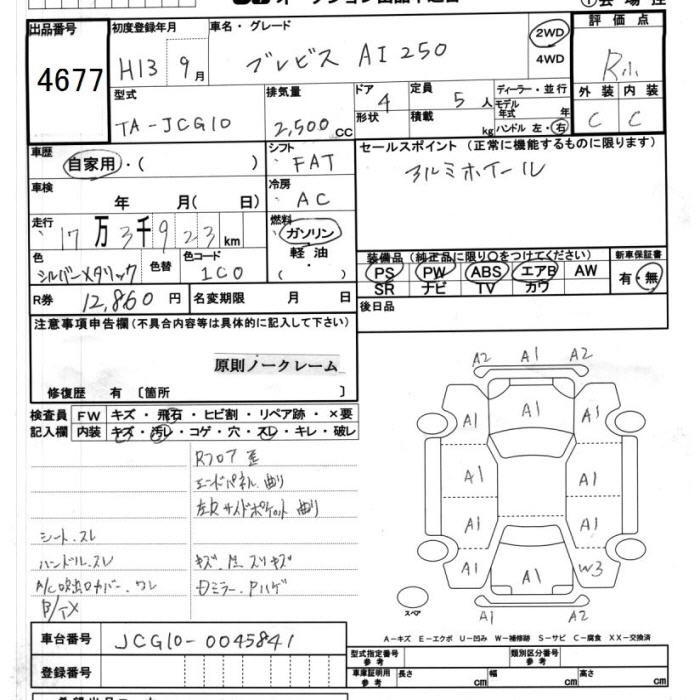 出品番号
4677
初度登録年月
H13 9月
車名・グレード
ブレビス AI250
2WD
4WD
評価点
R小
型式
TA-JCG10
排気量
2,500cc
ドア 4
形状
定員 5人
積載 kg
ディーラー・並行
モデル
年式 年
ハンドル 左・右
外装 内装
C C
車歴
自家用・( )
シフト
FAT
セールスポイント(正常に機能するものに限ります)
アルミホイール
車検
年 月( 日)
冷房
AC
走行
17万3千923km
燃料
ガソリン
・
軽油
色
シルバーメタリック
色替
色コード
1C0
装備品(純正品に限り〇をつけてください)
PS PW ABS エアB AW
SR ナビ TV カワ
新車保証書
有・無
R券 12,860円
名変期限 月 日
後日品
注意事項申告欄(不具合内容等は具体的に記入して下さい)
原則ノークレーム
修復歴 有 〔箇所 〕
検査員
記入欄
FW キズ・飛石・ヒビ割・リペア跡・×要
内装 キズ・汚レ・コゲ・穴・スレ・キレ・破レ
Rフロア歪
エンドパネル曲り
左右サイドポケット曲り
シート.スレ
ハンドル.スレ
A/C吹出口カバー.ワレ
キズ.凹.スリキズ
ミラー.Pハゲ
A2 A1 A2
A1
A1 A1
A1 A1
A1 A1
A1 W3
A1
A2 A1 A2
スペア
A－キズ E－エクボ U－凹み W－補修跡 S－サビ C－腐食 XX－交換済
車台番号
JCG10-0045841
登録番号
型式指定番号
参考
類別区分番号
参考
車庫証明用
参考
長さ cm
幅 cm
高さ cm